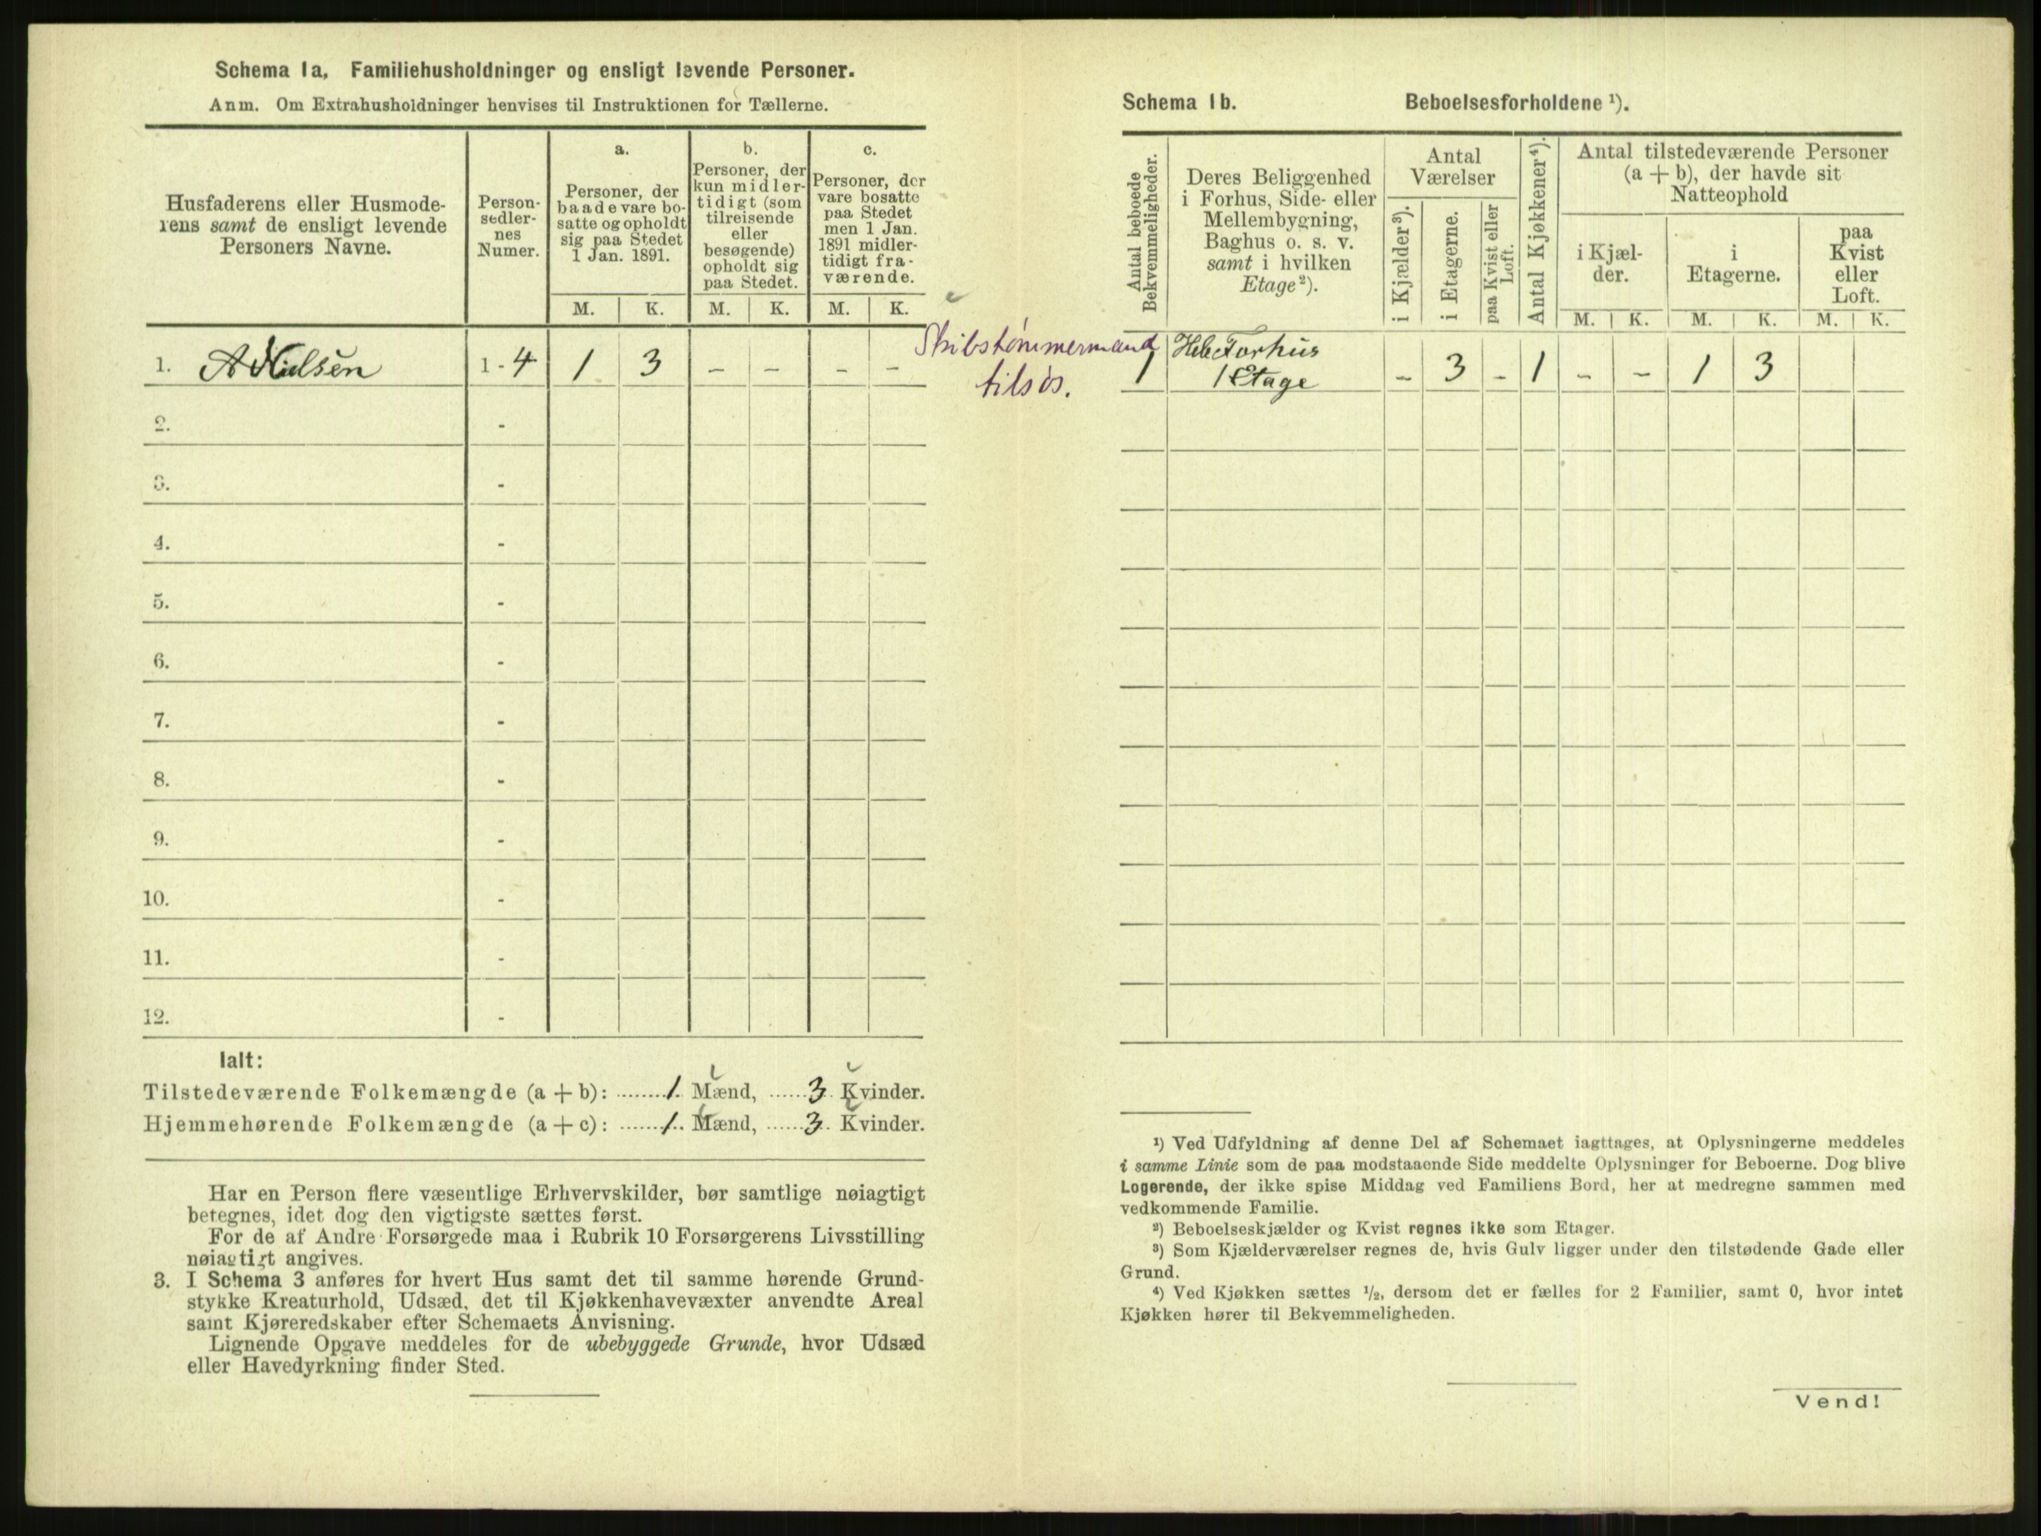 Schema 1a. Familiehusholdninger og ensligt levende Personer.
Anm. Om Extrahusholdninger henvises til Instruktionen for Tællerne.
Husfaderens eller Husmode-
rens samt de ensligt levende
Personers Navne.
Person-
sedler-
nes
Numer.
a.
Personer, der
baade vare bo-
satte og opholdt
sig paa Stedet
1 Jan. 1891.
b.
Personer, der
kun midler-
tidigt (som
tilreisende
eller
besøgende)
opholdt sig
paa Stedet.
c.
Personer, der
vare bosatte
paa Stedet
men 1 Jan.
1891 midler-
tidigt fra-
værende.
M. K. M. K. M. K.
1. A Nielsen 1 - 4 1 3 - - - -
2. -
3. -
4. -
5. -
6. -
7. -
8. -
9. -
10. -
11. -
12. -
Ialt:
Tilstedeværende Folkemængde (a + b): ........1. Mænd, ......3. Kvinder.
Hjemmehørende Folkemængde (a + c): ......1.. Mænd, ......3.. Kvinder.
Har en Person flere væsentlige Erhvervskilder, bør samtlige nøiagtigt
betegnes, idet dog den vigtigste sættes først.
For de af Andre Forsørgede maa i Rubrik 10 Forsørgerens Livsstilling
nøiagtigt angives.
3. I Schema 3 anføres for hvert Hus samt det til samme hørende Grund-
stykke Kreaturhold, Udsæd, det til Kjøkkenhavevæxter anvendte Areal
samt Kjøreredskaber efter Schemaets Anvisning.
Lignende Opgave meddeles for de ubebyggede Grunde, hvor Udsæd
eller Havedyrkning finder Sted.
Skibstømmermand
tilsøs.
Schema 1b. Beboelsesforholdene ¹).
Antal beboede
Bekvemmeligheder.
Deres Beliggenhed
i Forhus, Side- eller
Mellembygning,
Baghus o. s. v.
samt i hvilken
Etage ²).
Antal
Værelser
i Kjælder ³).
i Etagerne.
paa Kvist eller
Loft.
Antal Kjøkkener ⁴).
Antal tilstedeværende Personer
(a + b), der havde sit
Natteophold
i Kjæl-
der.
i
Etagerne.
paa
Kvist
eller
Loft.
M. K. M. K. M. K.
1 Forhus
1 Etage - 3 - 1 - - 1 3
¹) Ved Udfyldning af denne Del af Schemaet iagttages, at Oplysningerne meddeles
i samme Linie som de paa modstaaende Side meddelte Oplysninger for Beboerne. Dog blive
Logerende, der ikke spise Middag ved Familiens Bord, her at medregne sammen med
vedkommende Familie.
²) Beboelseskjælder og Kvist regnes ikke som Etager.
³) Som Kjælderværelser regnes de, hvis Gulv ligger under den tilstødende Gade eller
Grund.
⁴) Ved Kjøkken sættes ½, dersom det er fælles for 2 Familier, samt 0, hvor intet
Kjøkken hører til Bekvemmeligheden.
Vend!